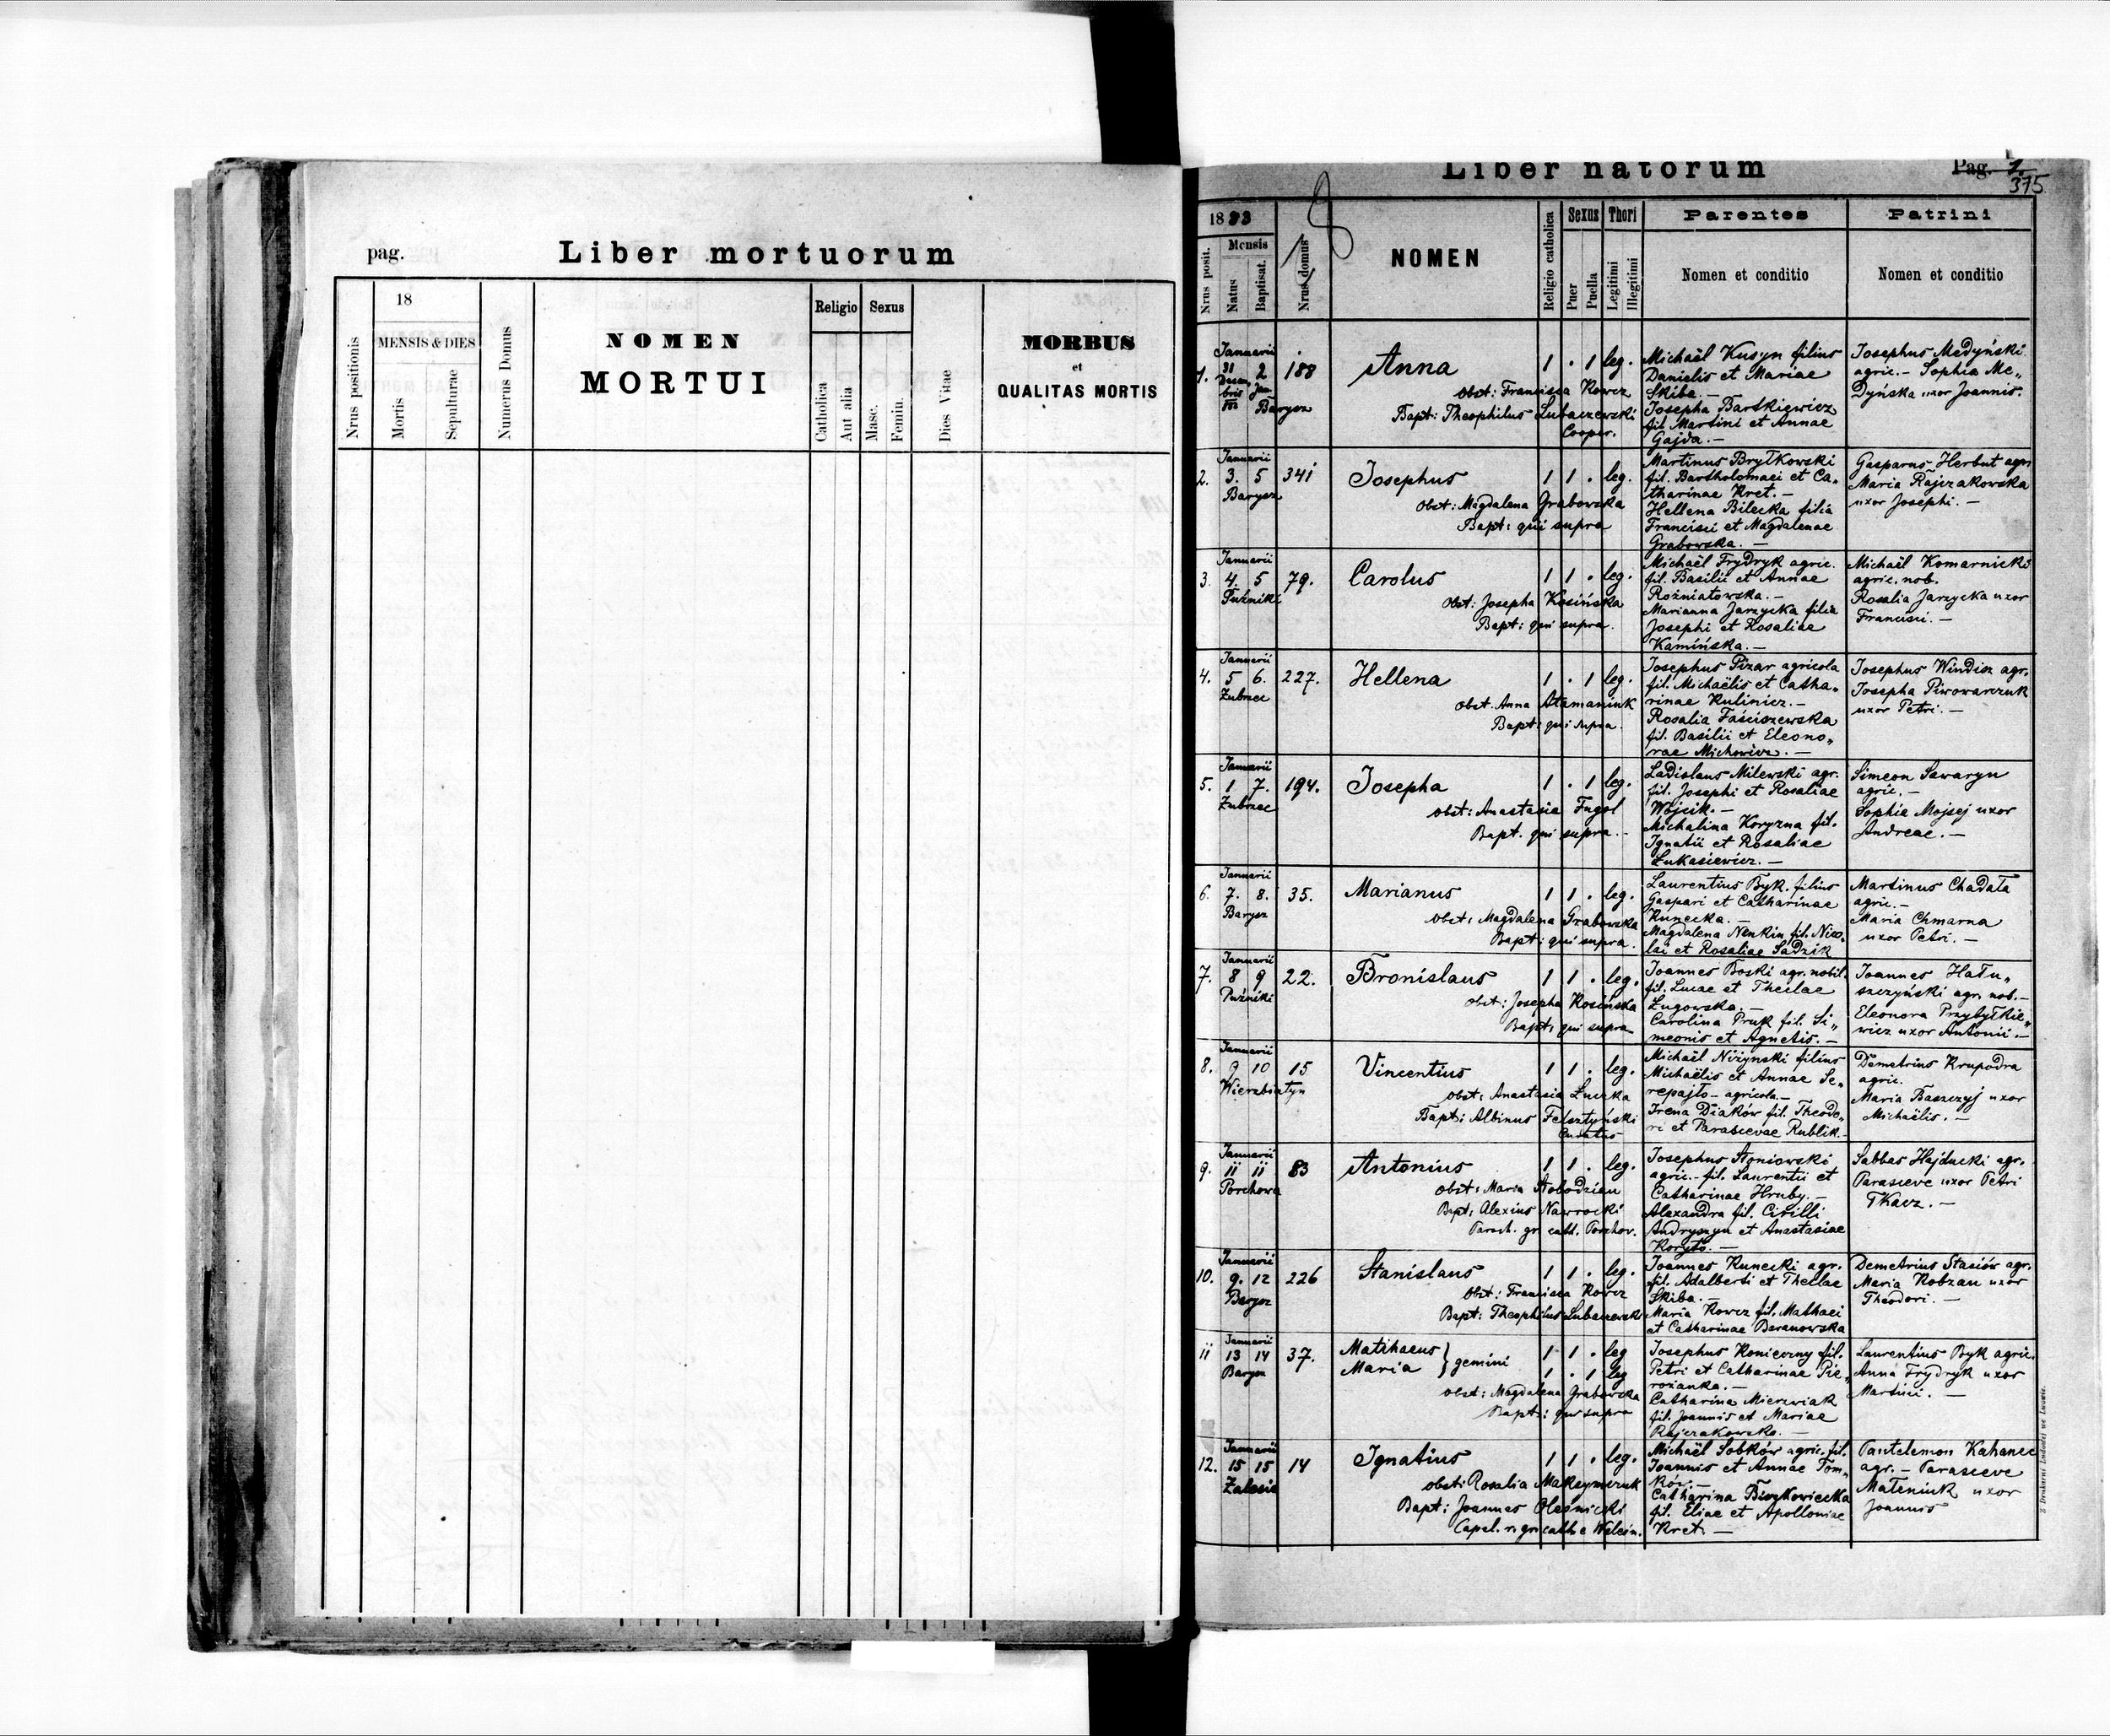 pag. Liber mortuorum
Nrus positionis
18
MENSIS & DIES
Mortis
Sepulturae
Numerus Domus
NOMEN
MORTUI
Religio
Catholica
Aut alia
Sexus
Masc.
Femin.
Dies Vitae
MORBUS
et
QUALITAS MORTIS
Liber natorum
Pag. 1.
375
1883
Nrus posit.
Mensis
Natus
Baptisat.
Nrus domus
NOMEN
Religio catholica
Sexus
Puer
Puella
Thori
Legitimi
Illegitimi
Parentes
Nomen et conditio
Patrini
Nomen et conditio
1.
Januarii
31 2
Barysz
188
Anna
1 . 1 leg.
obst: Francisca Kowcz
Bapt: Theophilus Lubaczewski
Cooper.
Michaël Kusyn filius
Danielis et Mariae
Skiba. —
Josepha Bartkiewicz
fil Martini et Annae
Gajda. —
Josephus Medyński
agric. — Sophia Me„
dyńska uxor Joannis.
2.
Januarii
3. 5
Barysz
341
Josephus
1 1 . leg.
Obst: Magdalena Grabowska
Bapt: qui supra
Martinus Brytkowski
fil. Bartholomaei et Ca„
tharinae Kret. —
Hellena Bilecka filia
Francisci et Magdalenae
Grabowska. —
Gasparus Herbut agr.
Maria Rajczakowska
uxor Josephi. —
3.
Januarii
4. 5
Puźniki
79.
Carolus
1 1 . leg.
Obst: Josepha Kosińska
Bapt: qui supra.
Michaël Frydryk agric.
fil. Basilii et Annae
Rożniatowska. —
Marianna Jarzycka filia
Josephi et Rosaliae
Kamińska. —
Michaël Komarnicki
agric. nob.
Rosalia Jarzycka uxor
Francisci. —
4.
Januarii
5 6.
Zubrzec
227.
Hellena
1 . 1 leg.
Obst. Anna Atamaniuk
Bapt: qui supra.
Josephus Pizar agricola
fil. Michaëlis et Catha„
rinae Kulinicz. —
Rosalia Faściszewska
fil. Basilii et Eleono„
rae Michowicz. —
Josephus Windisz agr.
Josepha Piwowarczuk
uxor Petri. —
5.
Januarii
1 7.
Zubrzec
194.
Josepha
1 . 1 leg.
obst: Anastasia Fugol
Bapt. qui supra. —
Ladislaus Milewski agr.
fil. Josephi et Rosaliae
Wojcik. —
Michalina Koryzna fil.
Ignatii et Rosaliae
Łukasiewicz. —
Simeon Sawaryn
agric. —
Sophia Mojsej uxor
Andreae. —
6.
Januarii
7. 8.
Barysz
35.
Marianus
1 1 . leg.
Obst: Magdalena Grabowska
Bapt: qui supra.
Laurentius Byk. filius
Gaspari et Catharinae
Kunecka. —
Magdalena Nenkin fil. Nico„
lai et Rosaliae Sadzik
Martinus Chadała
agric. —
Maria Chmarna
uxor Petri. —
7.
Januarii
8 9
Puźniki
22.
Bronislaus
1 1 . leg.
obst: Josepha Kosińska
Bapt: qui supra
Joannes Boski agr. nobil.
fil. Lucae et Theclae
Ługowska. —
Carolina Pruk fil. Si„
meonis et Agnetis. —
Joannes Hału„
szczyński agr. nob. —
Eleonora Przybyłkie„
wicz uxor Antonii. —
8.
Januarii
9 10
Wierzbiatyn
15
Vincentius
1 1 . leg.
obst: Anastasia Łuczka
Bapt: Albinus Felsztyński
Curatus
Michaël Niżynski filius
Michaëlis et Annae Se„
repajło — agricola. —
Irena Diaków fil. Theodo„
ri et Parascevae Rublik. —
Demetrius Krupodra
agric.
Maria Baszczyj uxor
Michaëlis. —
9.
Januarii
11 11
Porchowa
83
Antonius
1 1 . leg.
Obst: Maria Słobodzian
Bapt: Alexius Nawrocki
Paroch. gr cath. Porchov.
Josephus Słoniowski
agric. — fil. Laurentii et
Catharinae Hruby. —
Alexandra fil. Cirilli
Andryszyn et Anastasiae
Koryto. —
Sabbas Hajducki agr.
Parasceve uxor Petri
Tkacz. —
10.
Januarii
9. 12
Barysz
226
Stanislaus
1 1 . leg.
Obst: Francisca Kowcz
Bapt: Theophilus Lubaczewski
Joannes Kunecki agr.
fil. Adalberti et Theclae
Skiba. —
Maria Kowcz fil. Mathaei
et Catharinae Baranowska
Demetrius Stasiów agr.
Maria Kobzan uxor
Theodori. —
11
Januarii
13 14
Barysz
37.
Mathaeus
Maria } gemini
1 1 . leg
1 . 1 leg
obst: Magdalena Grabowska
Bapt: qui supra
Josephus Konieczny fil.
Petri et Catharinae Pie„
rożanka. —
Catharina Mierzwiak
fil. Joannis et Mariae
Rajczakowska. —
Laurentius Byk agric.
Anna Frydryk uxor
Martini. —
12.
Januarii
15 15
Zalesie
14
Ignatius
1 1 . leg.
obst: Rosalia Maksymczuk
Bapt: Joannes Oleśnicki
Capel. r. gr cath e Weleśn.
Michaël Sobków agric. fil.
Joannis et Annae Tom„
ków. —
Catharina Biczkowiecka
fil. Eliae et Apolloniae
Kret. —
Pantelemon Kahanec
agr. — Parasceve
Mateniuk uxor
Joannis
Z Drukarni Ludowej we Lwowie.